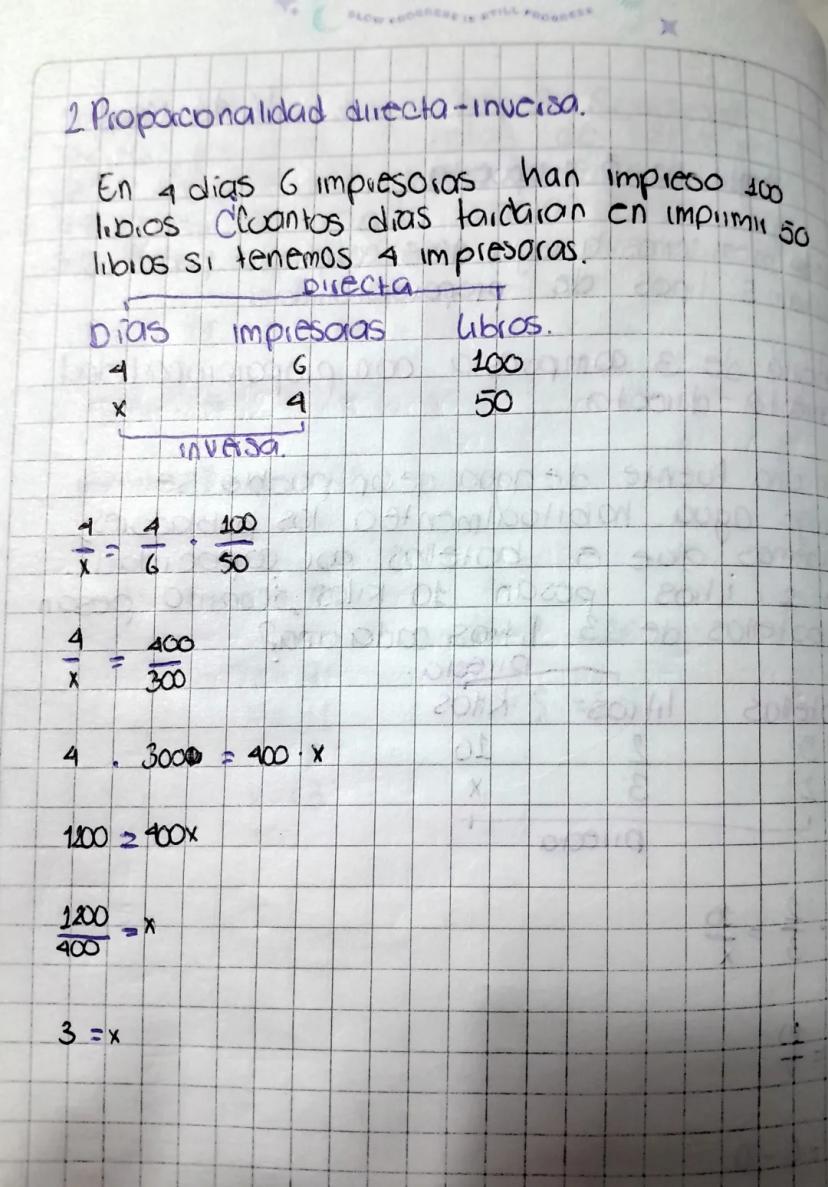 SLOW PROGRESS IS STILL PROGRESS
2 Proporcionalidad directa-inversa.
En 4 dias 6 impresoras han impreso 100
libros Cuantos dias tardaran en imprimir 50
libros si tenemos 4 impresoras.
Directa
Dias impresoras libros.
4 6 100
x 4 50
inversa.
4/x = 4/6 · 100/50
4/x = 400/300
4 . 300 = 400 · x
1200 = 400x
1200/400 = x
3 = x